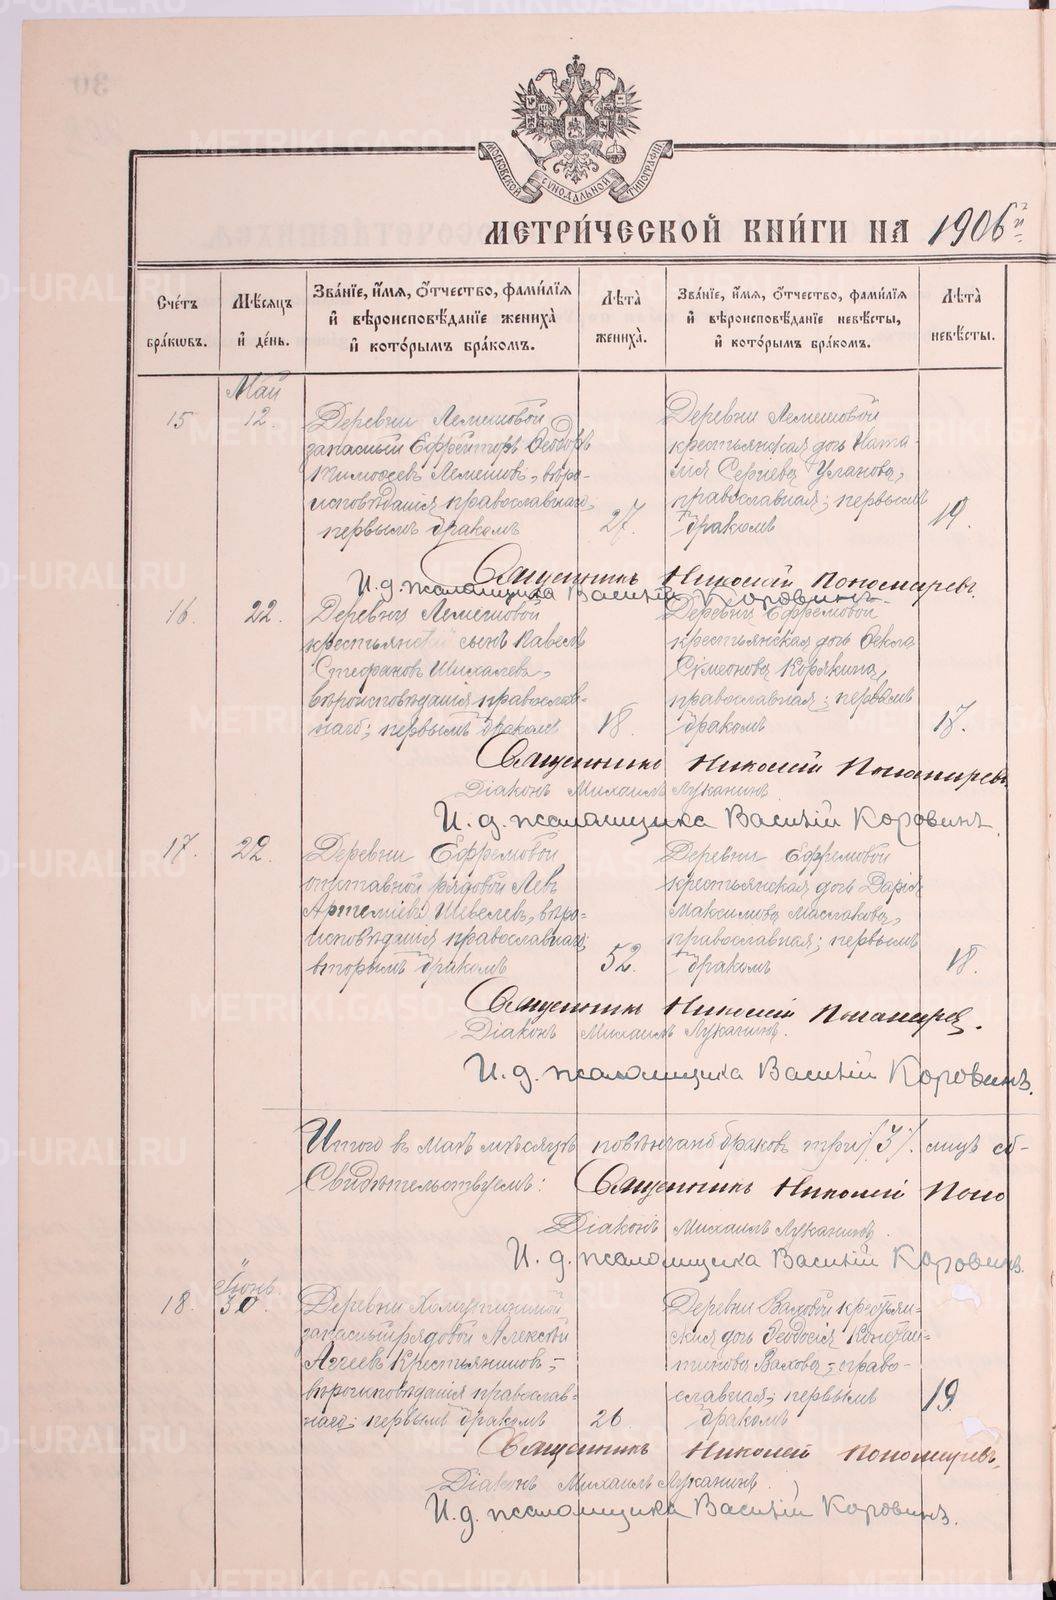 МОСКОВСКОЙ СѴНОДАЛЬНОЙ ТИПОГРАФІИ
МЕТРИ́ЧЕСКОЙ КНИ́ГИ НА 1906 г.
Сче́тъ бра́кѡвъ.
Мѣ́сяцъ и҆ де́нь.
Зва́нїе, и҆́мя, ѻ҆́тчество, фами́лїя и҆ вѣроисповѣ́данїе жениха̀ и҆ кото́рымъ бра́комъ.
Лѣ́та жениха̀.
Зва́нїе, и҆́мя, ѻ҆́тчество, фами́лїя и҆ вѣроисповѣ́данїе невѣ́сты, и҆ кото́рымъ бра́комъ.
Лѣ́та невѣ́сты.
Май
15 12.
Деревни Лемешовой
запасный Ефрейторъ Ѳеодоръ
Тимоѳеевъ Лемешовъ, вѣро-
исповѣданія православнаго,
первымъ бракомъ
27.
Деревни Лемешовой
крестьянская дочь Ната-
лія Сергіева Уланова,
православная; первымъ
бракомъ
19.
Священникъ Николай Пономаревъ.
И. д. псаломщика Василій Коровинъ.
16. 22.
Деревни Лемешовой
крестьянскій сынъ Павелъ
Стефановъ Шихалевъ,
вѣроисповѣданія православ-
наго; первымъ бракомъ
18.
Деревни Ефремовой
крестьянская дочь Ѳекла
Симеонова Корякина,
православная; первымъ
бракомъ
17.
Священникъ Николай Пономаревъ
Діаконъ Михаилъ Луканинъ.
И. д. псаломщика Василій Коровинъ.
17. 22.
Деревни Ефремовой
отставной рядовой Левъ
Артеміевъ Шевелевъ, вѣро-
исповѣданія православнаго;
вторымъ бракомъ
52.
Деревни Ефремовой
крестьянская дочь Дарія
Максимова Маслакова,
православная; первымъ
бракомъ
18.
Священникъ Николай Пономарев.
Діаконъ Михаилъ Луканинъ.
И. д. псаломщика Василій Коровинъ.
Итого въ маѣ мѣсяцѣ повѣнчано браковъ три /3/. лицъ об-
Свидѣтельствуемъ: Священникъ Николай Поно
Діаконъ Михаилъ Луканинъ.
И. д. псаломщика Василій Коровинъ.
Іюнь.
18. 30.
Деревни
запасный рядовой Алексѣй
Агѣевъ Крестьянниковъ,-
вѣроисповѣданія православ-
наго; первымъ бракомъ
26.
Деревни Ваховой крестьян-
ская дочь Ѳеодосія Констан-
тинова Вахова,- право-
славная; первымъ
бракомъ
19.
Священникъ Николай Пономаревъ.
Діаконъ Михаилъ Луканинъ.
И. д. псаломщика Василій Коровинъ.
METRIKI.GASO-URAL.RU